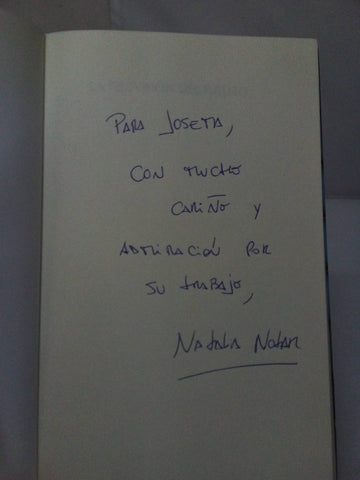 PARA JOSEFA,
CON MUCHO
CARIÑO Y
ADMIRACIÓN POR
SU TRABAJO,